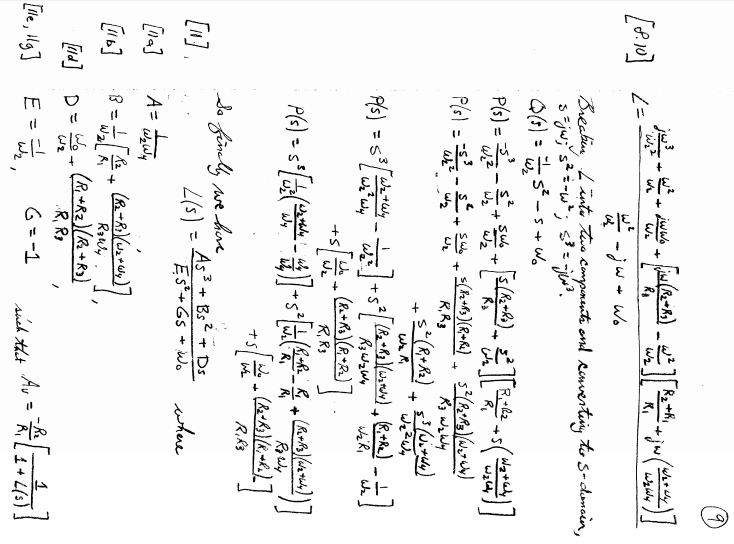 9
[8.10]
L = \frac{\frac{jω^3}{ω_2^2} + \frac{ω^2}{ω_2} + \frac{jωω_0}{ω_2} + [\frac{jω(R_2+R_3)}{R_3} - \frac{ω^2}{ω_2}][\frac{R_2+R_1}{R_1} + jω(\frac{ω_2+ω_4}{ω_2ω_4})]}{\frac{ω^2}{ω_2} - jω + ω_0}
Breaking L into two components and converting to s-domain,
s = jω, s^2 = -ω^2, s^3 = -jω^3.
Q(s) = \frac{-1}{ω_2} s^2 - s + ω_0
P(s) = \frac{-s^3}{ω_2^2} - \frac{s^2}{ω_2} + \frac{sω_0}{ω_2} + [\frac{s(R_2+R_3)}{R_3} + \frac{s^2}{ω_2}][\frac{R_1+R_2}{R_1} + s(\frac{ω_2+ω_4}{ω_2ω_4})]
P(s) = \frac{-s^3}{ω_2^2} - \frac{s^2}{ω_2} + \frac{sω_0}{ω_2} + \frac{s(R_2+R_3)(R_1+R_2)}{R_1R_3} + \frac{s^2(R_2+R_3)(ω_2+ω_4)}{R_3ω_2ω_4}
+ \frac{s^2(R_1+R_2)}{ω_2R_1} + \frac{s^3(ω_2+ω_4)}{ω_2^2ω_4}
P(s) = s^3[\frac{ω_2+ω_4}{ω_2^2ω_4} - \frac{1}{ω_2^2}] + s^2[\frac{(R_2+R_3)(ω_2+ω_4)}{R_3ω_2ω_4} + \frac{(R_1+R_2)}{ω_2R_1} - \frac{1}{ω_2}]
+ s[\frac{ω_0}{ω_2} + \frac{(R_2+R_3)(R_1+R_2)}{R_1R_3}]
P(s) = s^3[\frac{1}{ω_2^2}(\frac{ω_2+ω_4}{ω_4} - \frac{ω_4}{ω_4})] + s^2[\frac{1}{ω_2}(\frac{R_1+R_2}{R_1} - \frac{R_1}{R_1} + \frac{(R_2+R_3)(ω_2+ω_4)}{R_3ω_4})]
+ s[\frac{ω_0}{ω_2} + \frac{(R_2+R_3)(R_1+R_2)}{R_1R_3}]
So finally we have
[11]. L(s) = \frac{As^3 + Bs^2 + Ds}{Es^2 + Gs + ω_0} where
[11a] A = \frac{1}{ω_2ω_4},
[11b] B = \frac{1}{ω_2}[\frac{R_2}{R_1} + \frac{(R_2+R_3)(ω_2+ω_4)}{R_3ω_4}],
[11d] D = \frac{ω_0}{ω_2} + \frac{(R_1+R_2)(R_2+R_3)}{R_1R_3},
[11e, 11g] E = \frac{-1}{ω_2}, G = -1 such that Av = \frac{-R_2}{R_1}[\frac{1}{1+L(s)}]